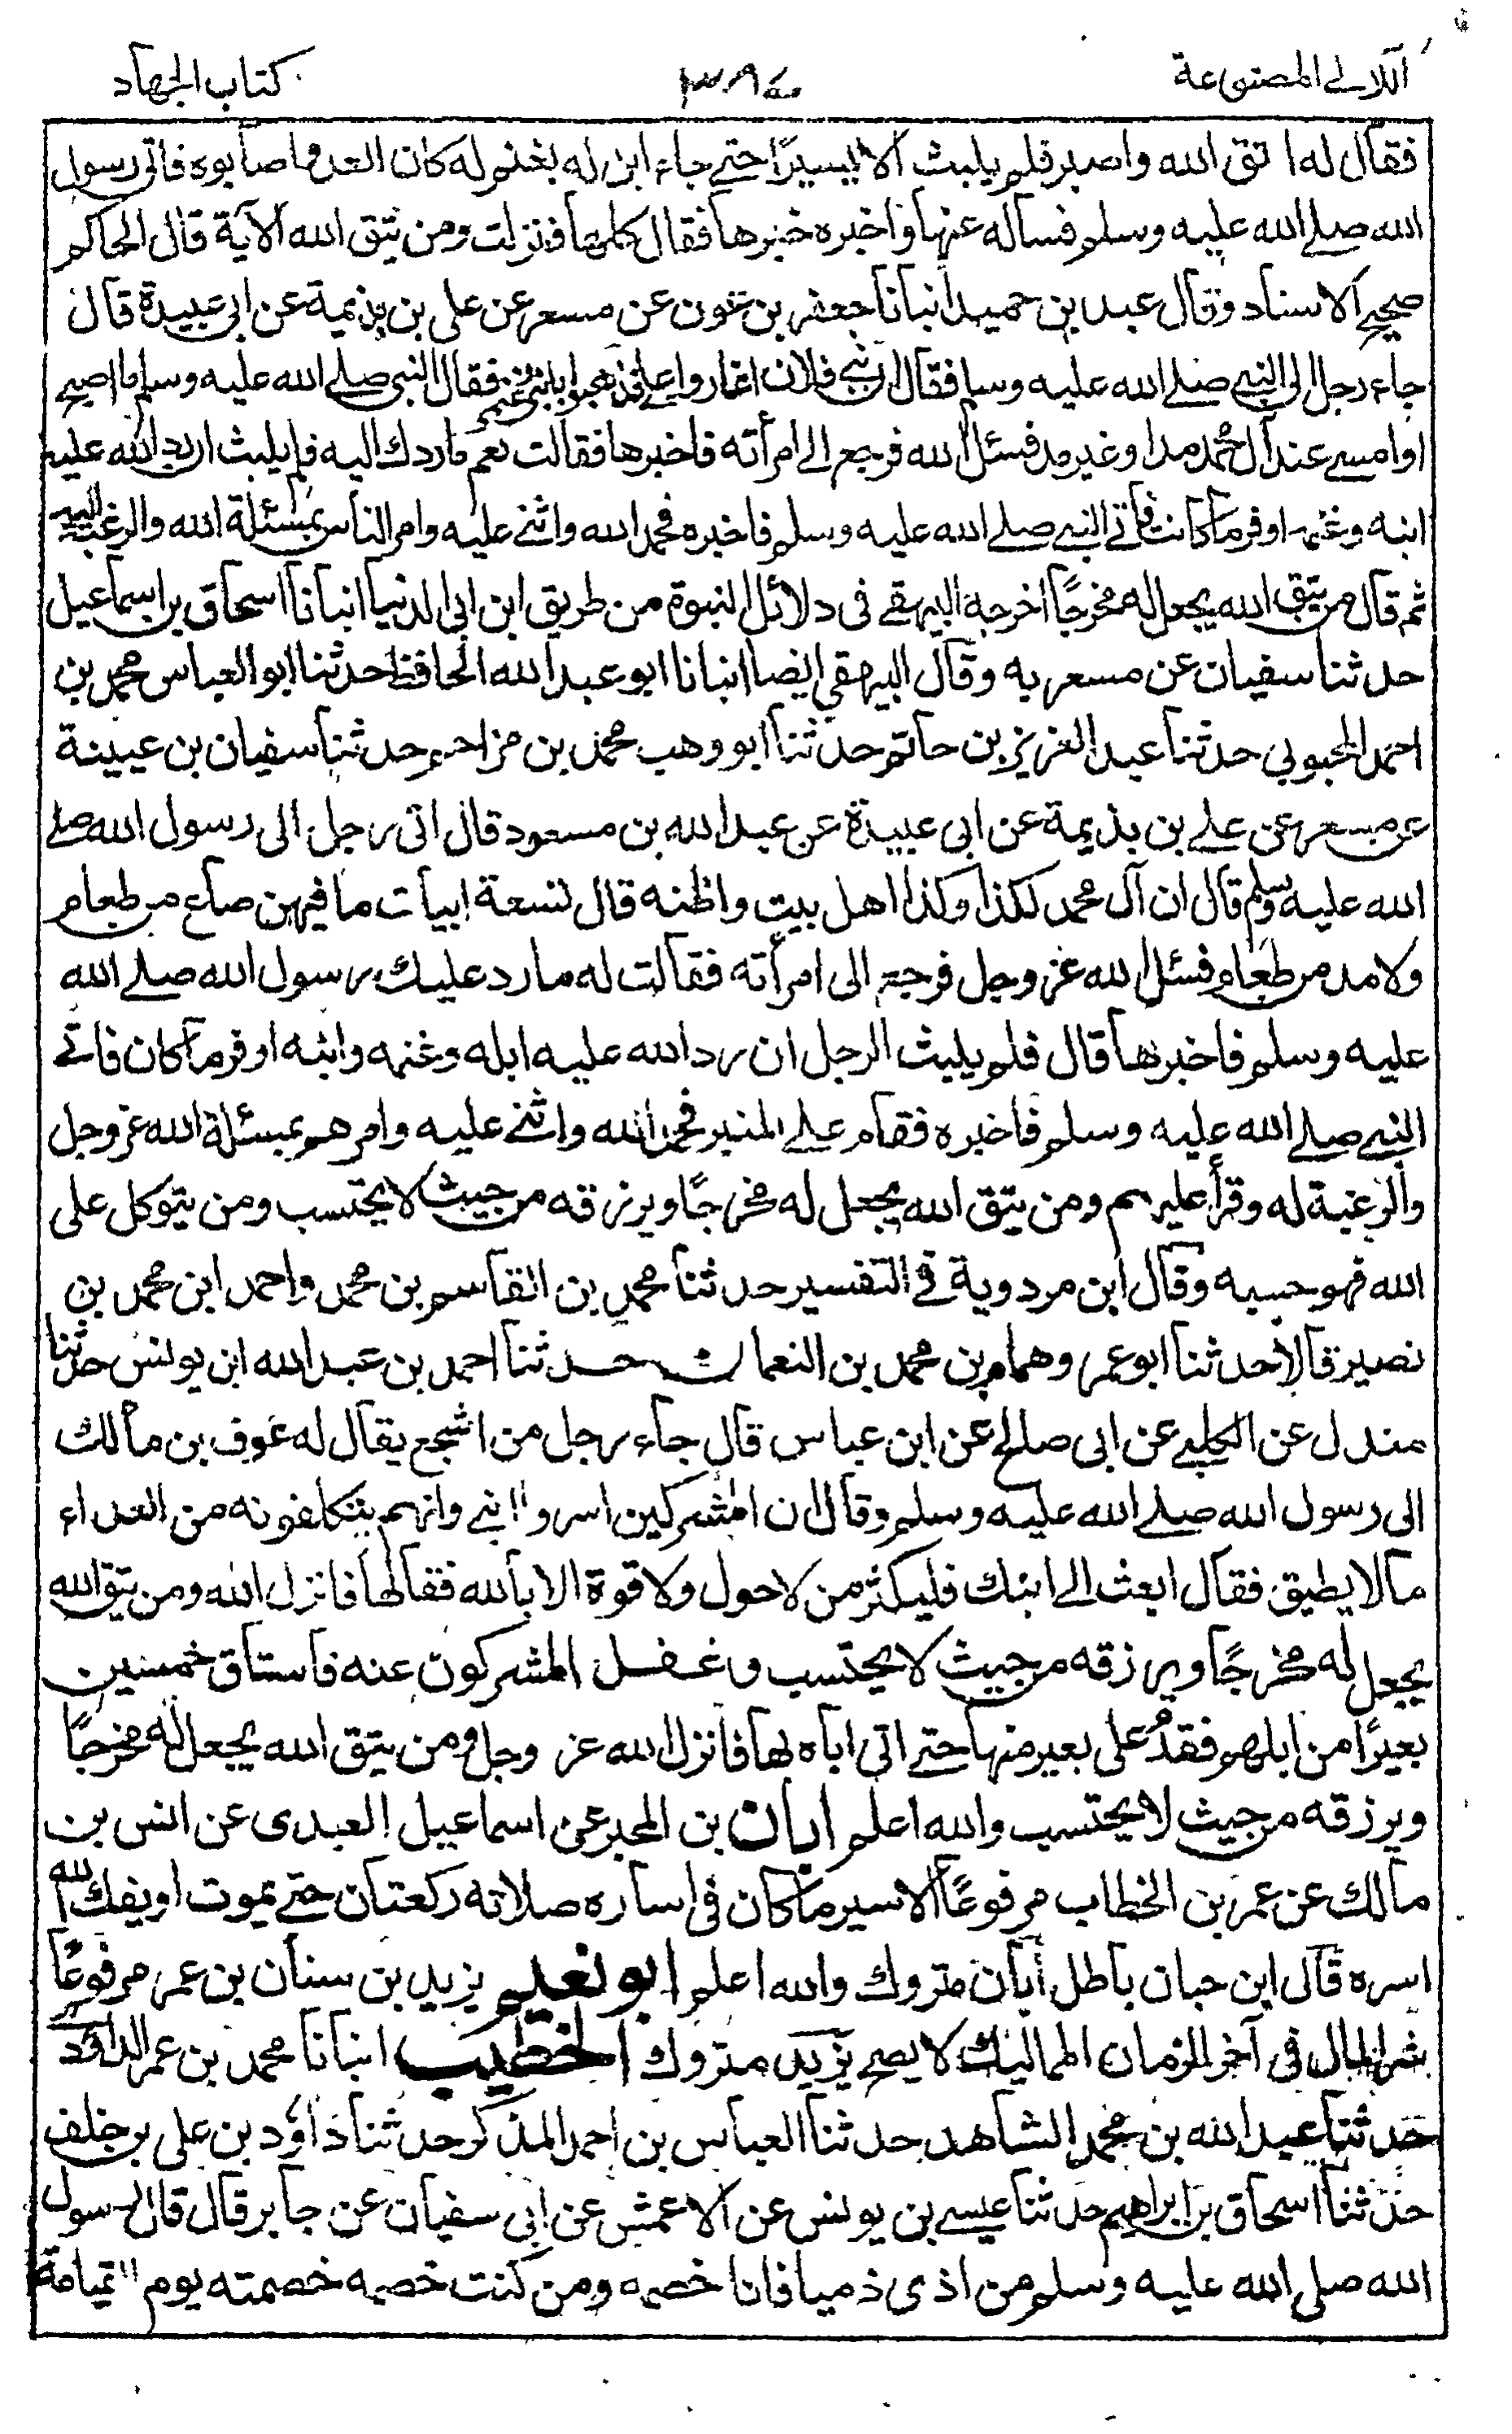 اللآلے المصنوعة
٣٨٤
كتاب الجهاد
فقال له اتق الله واصبر فلم يلبث الا يسيرًا حتے جاء ابن له بغنم له كان العدو اصابوه فاتى رسول
الله صلے الله عليه وسلم فساله عنها واخبره خبرها فقال كلها فنزلت ومن يتق الله الآية قال الحاكم
صحيح الاسناد وقال عبد بن حميد انبانا جعفر بن عون عن مسعر عن على بن بذيمة عن ابى عبيدة قال
جاء رجل الى النبے صلے الله عليه وسلم فقال ان بنے فلان اغاروا علے فذهبوا بابنى وغنمى فقال النبى صلے الله عليه وسلم ما اصبح
او امسے عند آل محمد مد او غير مد فسئل الله فرجع الے امرأته فاخبرها فقالت نعم ما ردك اليه فلم يلبث ان رد الله عليه
ابنه وغنمه اوفر ما كانت فاتے النبے صلے الله عليه وسلم فاخبره فحمد الله واثنے عليه وامر الناس بمسئلة الله والرغبة اليه
ثم قال من يتق الله يجعل له مخرجًا اخرجه البيهقے فى دلائل النبوة من طريق ابن ابى الدنيا انبانا اسحاق بن اسماعيل
حدثنا سفيان عن مسعر به وقال البيهقي ايضا انبانا ابو عبد الله الحافظ حدثنا ابو العباس محمد بن
احمد المحبوبي حدثنا عبد العزيز بن حاتم حدثنا ابو وهب محمد بن مزاحم حدثنا سفيان بن عيينة
عن مسعر عن علے بن بذيمة عن ابى عبيدة عن عبد الله بن مسعود قال اتى رجل الى رسول الله صلے
الله عليه وسلم قال ان آل محمد لكذا وكذا اهل بيت واظنه قال تسعة ابيات ما فيهن صاع من طعام
ولا مد من طعام فسئل الله عز وجل فرجع الى امرأته فقالت له ما رد عليك رسول الله صلے الله
عليه وسلم فاخبرها قال فلم يلبث الرجل ان رد الله عليه ابله وغنمه وابنه اوفر ما كان فاتے
النبے صلے الله عليه وسلم فاخبره فقام علے المنبر فحمد الله واثنے عليه وامرهم بمسئلة الله عز وجل
والرغبة له وقرأ عليهم ومن يتق الله يجعل له مخرجًا ويرزقه من حيث لا يحتسب ومن يتوكل على
الله فهو حسبه وقال ابن مردوية فے التفسير حدثنا محمد بن القاسم بن محمد واحمد ابن محمد بن
نصير قالا حدثنا ابو عمر وهمام بن محمد بن النعمان حدثنا احمد بن عبد الله ابن يونس حدثنا
مندل عن الكلبے عن ابى صالح عن ابن عباس قال جاء رجل من اشجع يقال له عوف بن مالك
الى رسول الله صلے الله عليه وسلم وقال ان المشركين اسروا ابنے وانهم يتكلفونه من الغداء
مالا يطيق فقال ابعث الے ابنك فليكثر من لا حول ولا قوة الا بالله فقالها فانزل الله ومن يتق الله
يجعل له مخرجًا ويرزقه من حيث لا يحتسب وغفل المشركون عنه فاستاق خمسين
بعيرًا من ابلهم فقعد على بعير منها حتے اتى اباه بها فانزل الله عز وجل ومن يتق الله يجعل له مخرجًا
ويرزقه من حيث لا يحتسب والله اعلم ابان بن المحبر عن اسماعيل العبدى عن انس بن
مالك عن عمر بن الخطاب مرفوعًا الاسير ما كان فى اساره صلاته ركعتان حتے يموت او يفك الله
اسره قال ابن حبان باطل أبان متروك والله اعلم ابو نعيم يزيد بن سنان بن عمر مرفوعًا
شر المال فى آخر الزمان المماليك لا يصح يزيد متروك الخطيب انبانا محمد بن عمر الداودى
حدثنا عبد الله بن محمد الشاهد حدثنا العباس بن احمد المذكر حدثنا داود بن على بن خلف
حدثنا اسحاق بن ابراهيم حدثنا عيسے بن يونس عن الاعمش عن ابى سفيان عن جابر قال قال رسول
الله صلى الله عليه وسلم من اذى ذميا فانا خصمه ومن كنت خصمه خصمته يوم القيامة